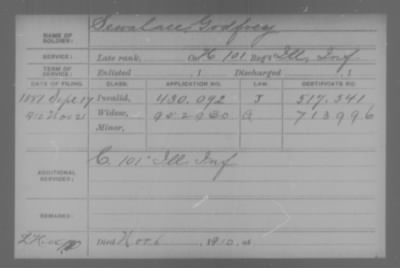 NAME OF SOLDIER: Godfrey
SERVICE: Late rank, Co H 101 Reg't Ill. Inf
TERM OF SERVICE: Enlisted , 1 Discharged , 1
DATE OF FILING. CLASS. APPLICATION NO. LAW. CERTIFICATE NO.
1887 Sept 17 Invalid, 430.092 J 517.341
Widow, 713996
Minor,
ADDITIONAL SERVICES: C. 101" Ill. Inf
REMARKS:
Died Nov 1910, at